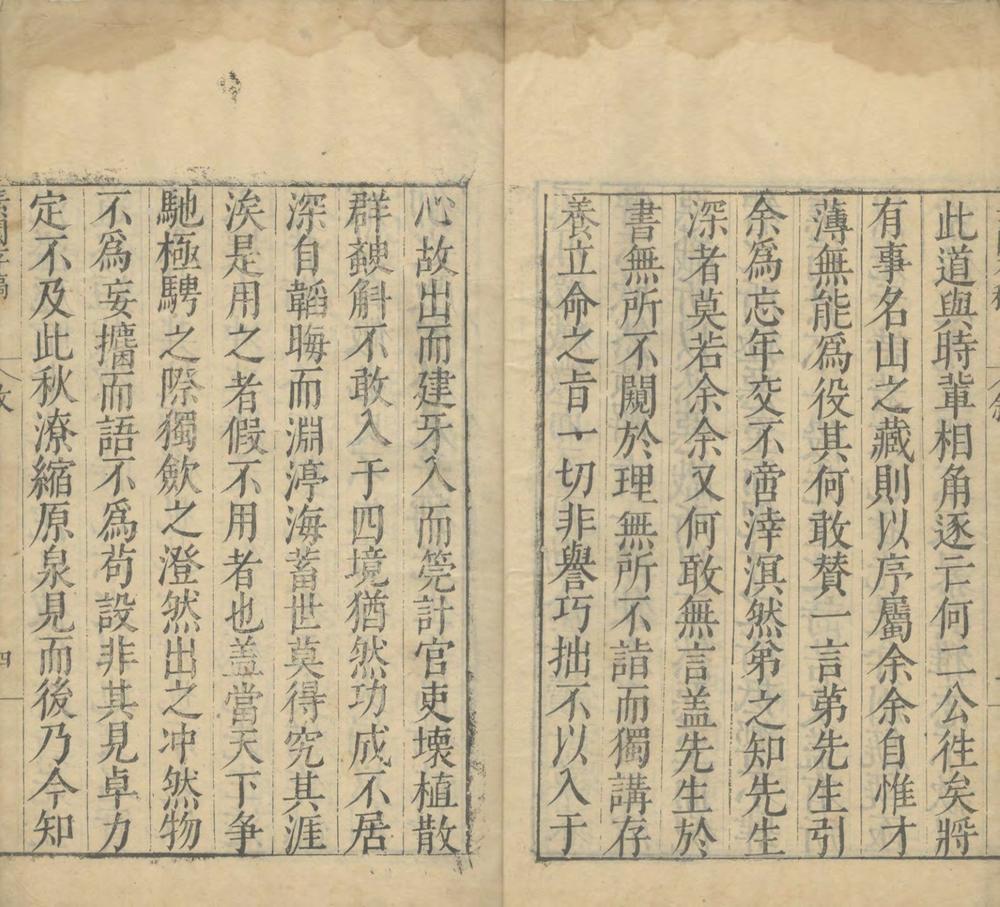 此道與時輩相角逐亡何二公徃矣將
有事名山之藏則以序屬余余自惟才
薄無能爲役其何敢賛一言第先生引
余爲忘年交不啻涬溟然弟之知先生
深者莫若余余又何敢無言盖先生於
書無所不闚於理無所不詣而獨講存
養立命之旨一切非譽巧拙不以入于
心故出而建牙入而筦計官吏壊植散
群䵹斛不敢入于四境猶然功成不居
深自韜晦而淵渟海蓄世莫得究其涯
涘是用之者假不用者也盖當天下争
馳極騁之際獨歛之澄然出之冲然物
不爲妄攟而語不爲茍設非其見卓力
定不及此秋潦縮原泉見而後乃今知
四